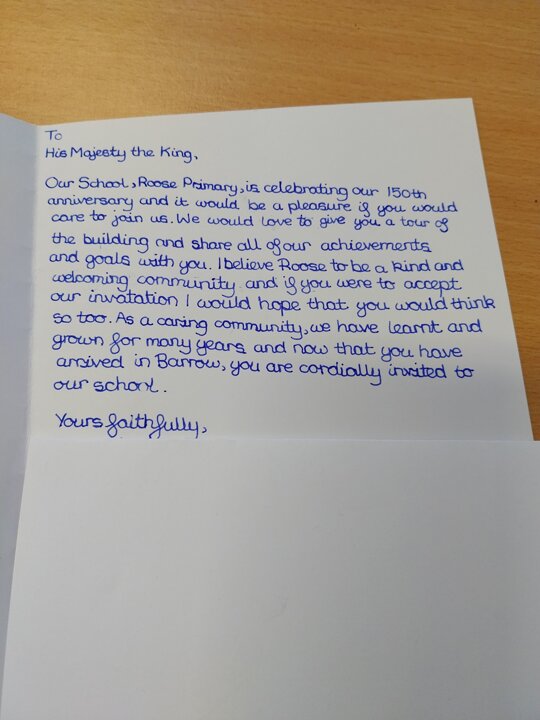 To
His Majesty the King,
Our School, Roose Primary, is celebrating our 150th
anniversary and it would be a pleasure if you would
care to join us. We would love to give you a tour of
the building and share all of our achievements
and goals with you. I believe Roose to be a kind and
welcoming community and if you were to accept
our invatation I would hope that you would think
so too. As a caring community, we have learnt and
grown for many years and now that you have
arrived in Barrow, you are cordially invited to
our school.
Yours faithfully,